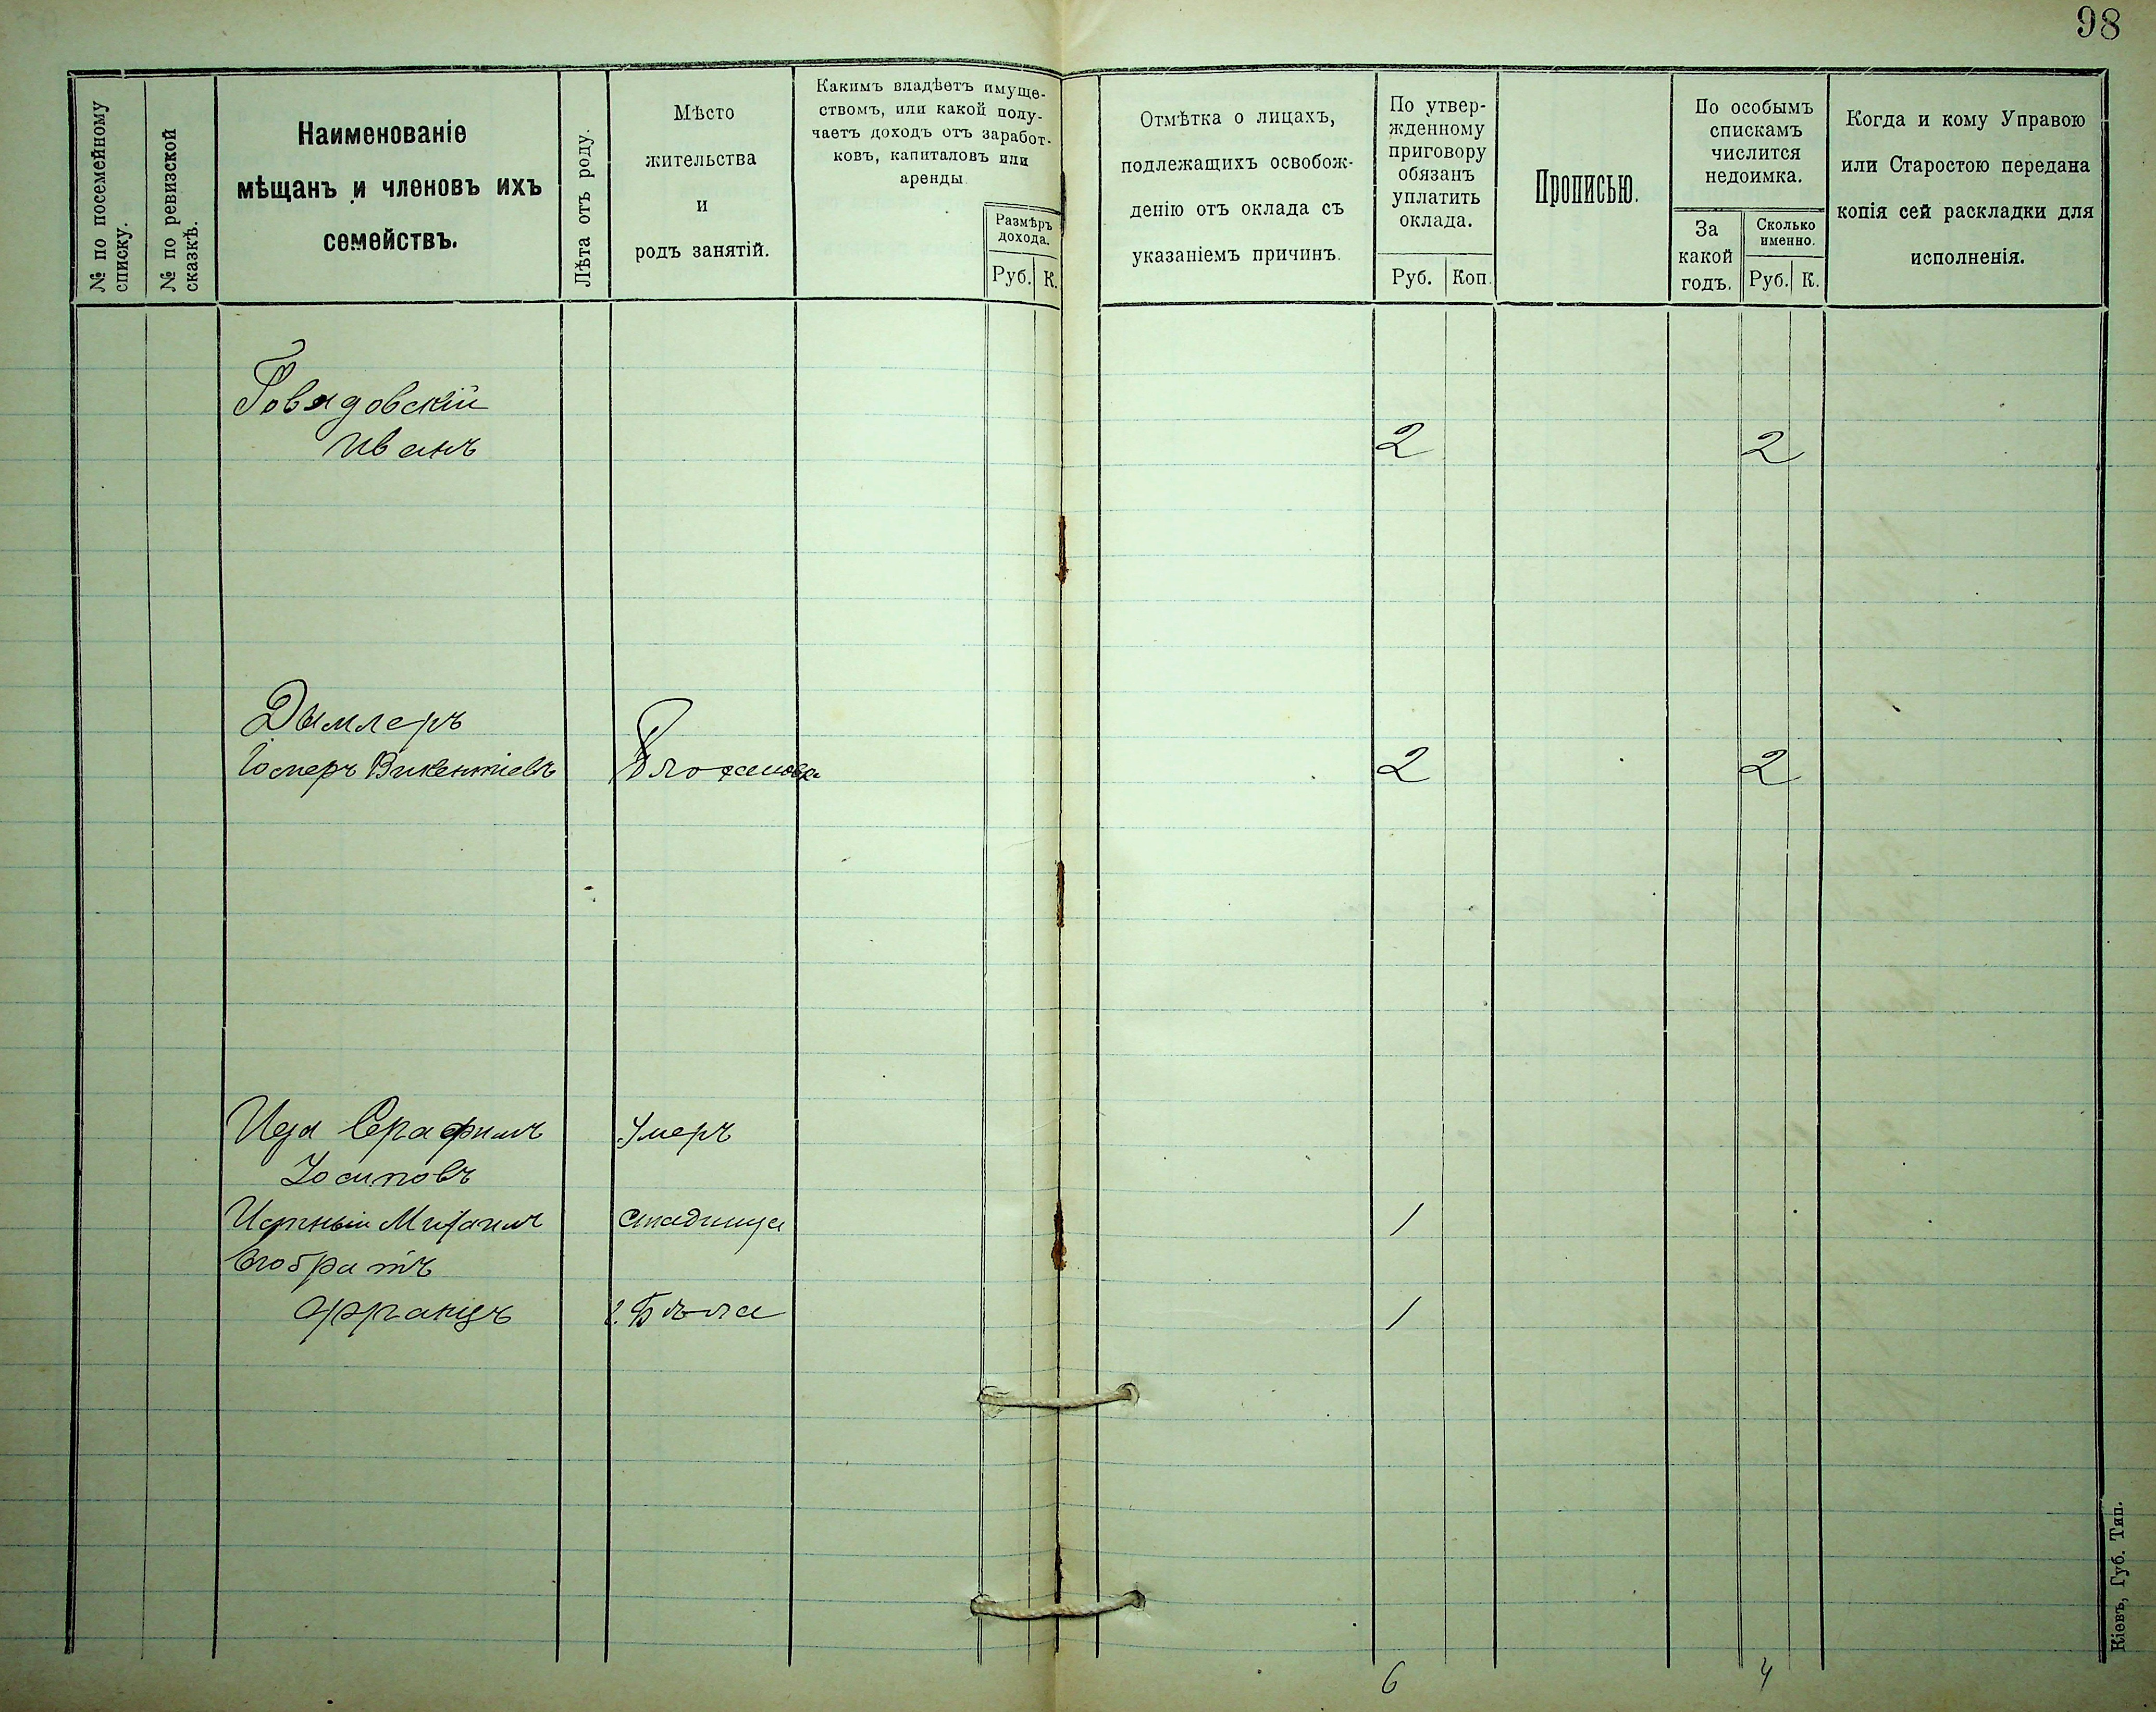 98
№ по посемейному списку.
№ по ревизской сказкѣ.
Наименованіе
мѣщанъ и членовъ ихъ
семействъ.
Лѣта отъ роду.
Мѣсто
жительства
и
родъ занятій.
Какимъ владѣетъ имуще-
ствомъ, или какой полу-
чаетъ доходъ отъ заработ-
ковъ, капиталовъ или
аренды.
Размѣръ
дохода.
Руб. К.
Отмѣтка о лицахъ,
подлежащихъ освобож-
денію отъ оклада съ
указаніемъ причинъ.
По утвер-
жденному
приговору
обязанъ
уплатить
оклада.
Руб. Коп.
Прописью.
По особымъ
спискамъ
числится
недоимка.
За
какой
годъ.
Сколько
именно.
Руб. К.
Когда и кому Управою
или Старостою передана
копія сей раскладки для
исполненія.
Говядовскій
Иванъ 2 2
Дымлеръ
Викентіевъ 2 2
Серафимъ Умеръ
Осиповъ
Михаилъ Стадница 1
Его братъ
Францъ г. Бѣла 1
6 4
Кіевъ, Губ. Тип.